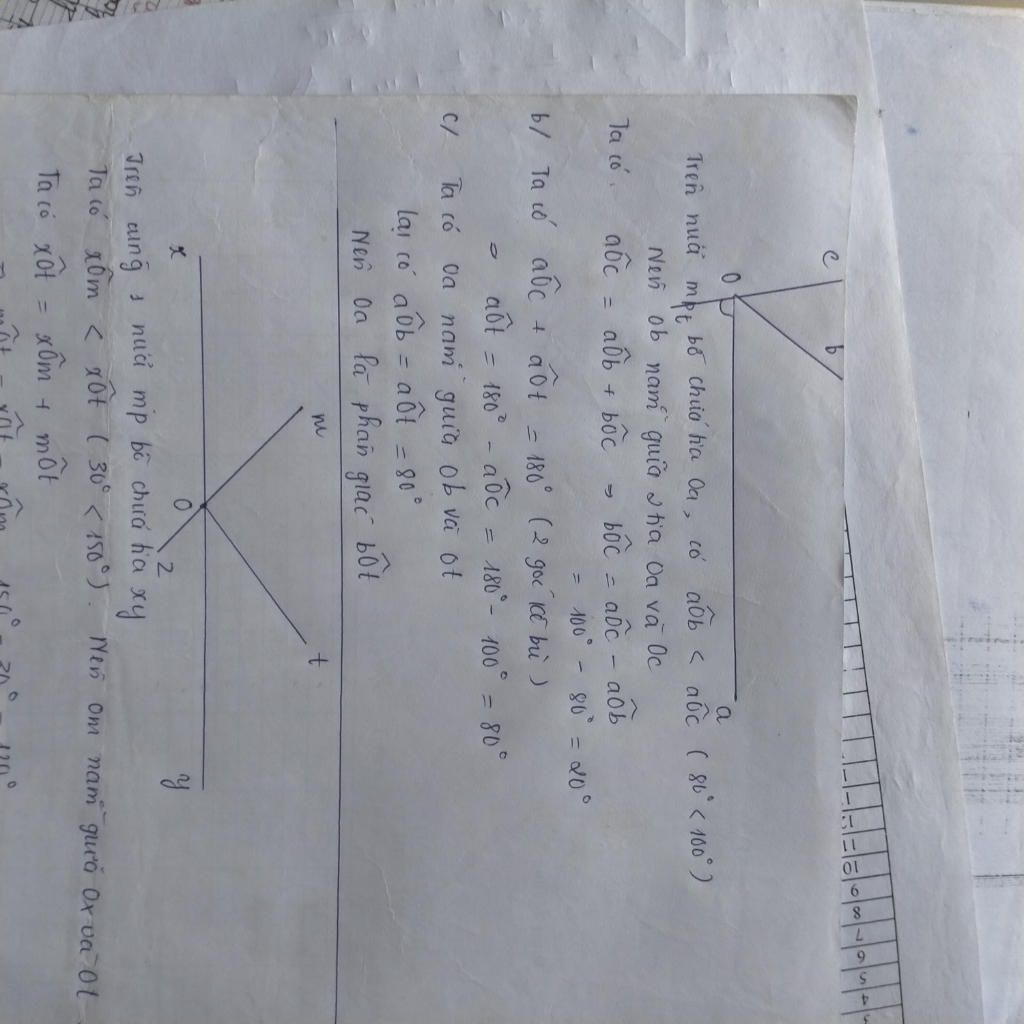 c
b
O
a
t
Trên nửa mp, bờ chứa tia Oa, có aÔb < aÔc ( 80° < 100° )
Nên Ob nằm giữa 2 tia Oa và Oc
Ta có. aÔc = aÔb + bÔc ⇒ bÔc = aÔc - aÔb
= 100° - 80° = 20°
b/ Ta có aÔc + aÔt = 180° ( 2 góc kề bù )
⇒ aÔt = 180° - aÔc = 180° - 100° = 80°
c/ Ta có Oa nằm giữa Ob và Ot
lại có aÔb = aÔt = 80°
Nên Oa là phân giác bÔt
m
t
x
O
y
z
Trên cùng 1 nửa mp bờ chứa tia xy
Ta có xÔm < xÔt ( 30° < 150° ). Nên Om nằm giữa Ox và Ot
Ta có xÔt = xÔm + mÔt
mÔt = xÔt - xÔm 150° - 30° = 120°